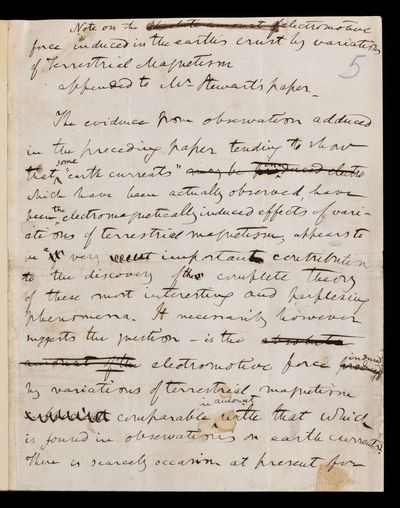 Note on the absolute amount of electromotive
force induced in the earth's crust by variations
of Terrestrial Magnetism
5
appended to Mr Stewart's paper.
The evidence from observation adduced
in the preceding paper tending to show
that some "earth currents" may be produced electro
which have been actually observed, have
been the electromagnetically induced effects of vari-
ations of terrestrial magnetism, appears to
me a very recent important contribution
to the discovery of the complete theory
of these most interesting and perplexing
phenomena. It necessarily however
suggests the question - is the absolute
amount of the electromotive force produced induced
by variations of terrestrial magnetism
comparable in amount with that which
is found in observations on earth currents?
There is scarcely occasion at present for